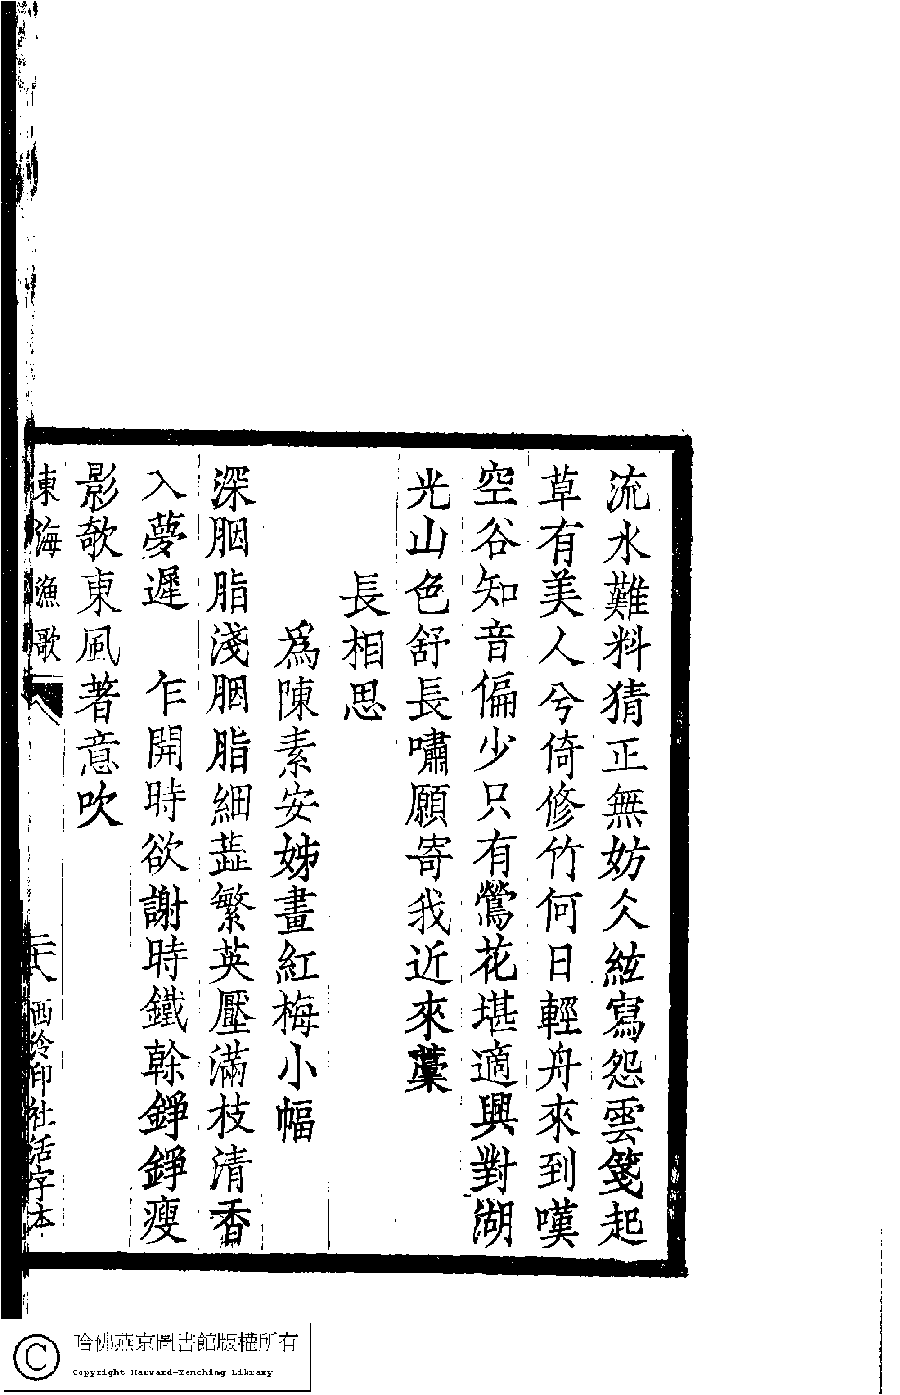 流水難料猜正無妨仌絃寫怨雲箋起
草有美人兮倚修竹何日輕舟來到嘆
空谷知音偏少只有鶯花堪適興對湖
光山色舒長嘯願寄我近來藁
長相思
爲陳素安姊畫紅梅小幅
深胭脂淺胭脂細蕋繁英壓滿枝清香
入夢遲　乍開時欲謝時鐵幹錚錚瘦
影欹東風著意吹
東海漁歌　二八　西泠印社活字本
哈佛燕京圖書館版權所有
Copyright Harvard-Yenching Library